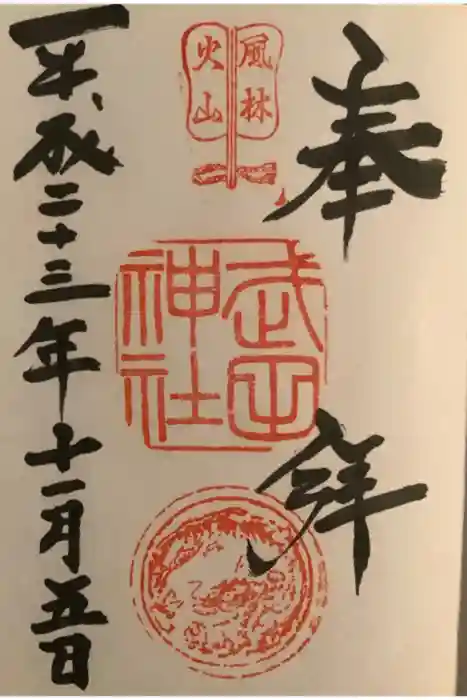 奉拝
風林
火山
武田
神社
平成二十三年十一月五日